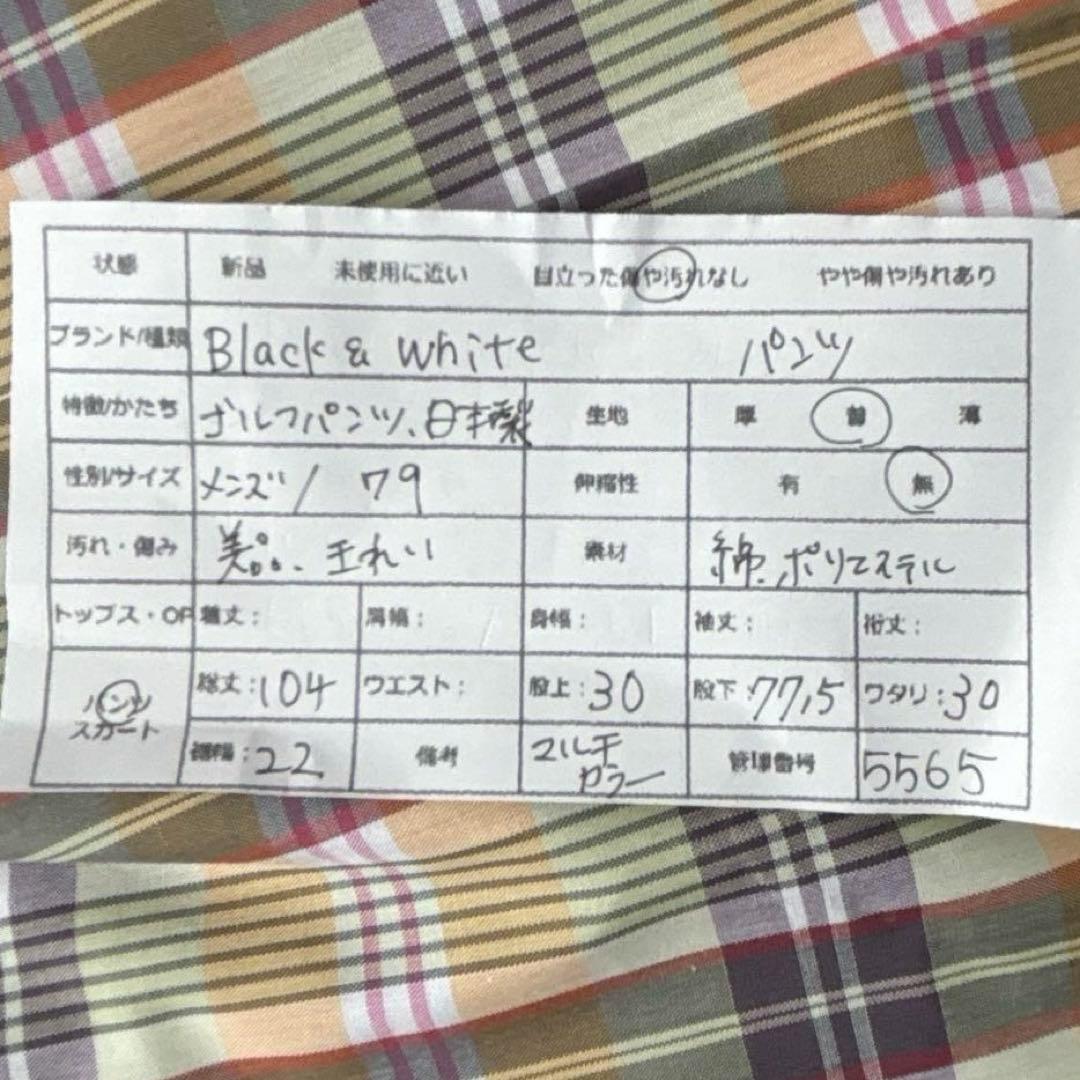 状態 新品 未使用に近い 目立った傷や汚れなし やや傷や汚れあり
ブランド/種類 Black & White パンツ
特徴/かたち ゴルフパンツ、日本製 生地 厚 普 薄
性別/サイズ メンズ/ 79 伸縮性 有 無
汚れ・傷み 美品、きれい 素材 綿、ポリエステル
トップス・OP 着丈: 肩幅: 身幅: 袖丈: 裄丈:
パンツ 総丈:104 ウエスト: 股上:30 股下:77,5 ワタリ:30
スカート 裾幅:22 備考 マルチ 管理番号 5565
カラー